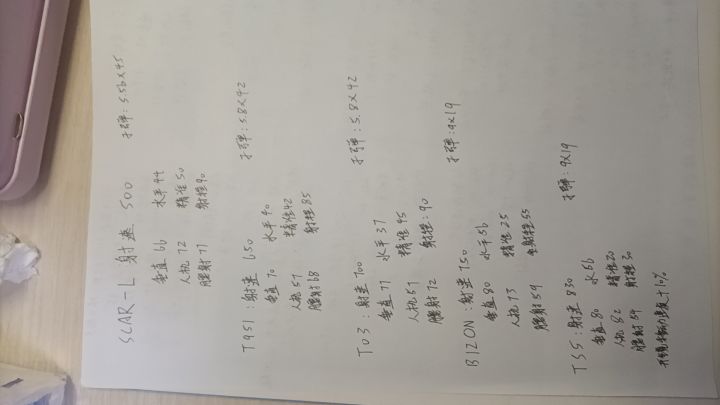 SCAR-L 射速 500 子弹:5.56×45
垂直 66 水平44
人机 72 精准50
腰射 77 射控90
T951:射速 650 子弹:5.8×42
垂直 70 水平40
人机 57 精准42
腰射 68 射控85
T03:射速 700 子弹:5.8×42
垂直 77 水平37
人机 57 精准45
腰射 72 射控:90
BIZON:射速 750 子弹:9×19
垂直 80 水平56
人机 73 精准25
腰射59 射控55
TSS:射速 830 子弹:9×19
垂直 80 水66
人机 82 精准20
腰射 59 射控30
+10%